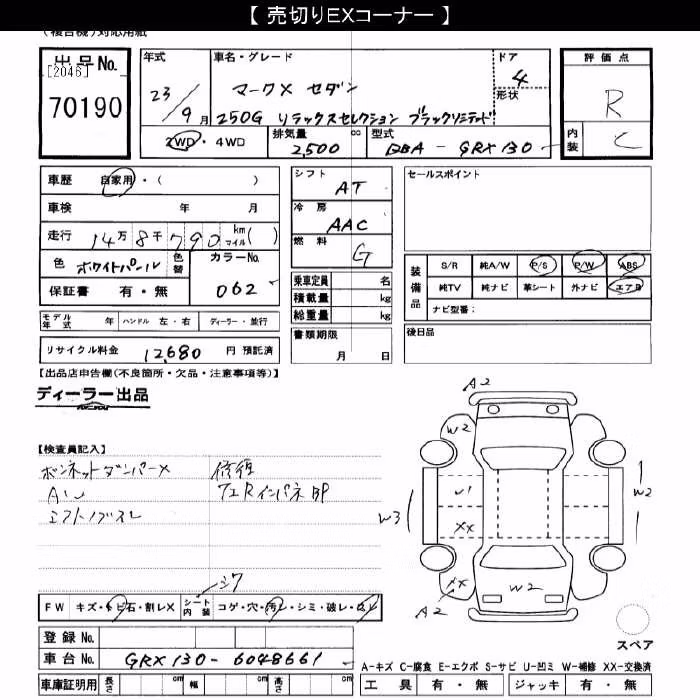 【 売切りEXコーナー 】
(複合機)対応用紙
出品No.
[2046]
70190
年式
23/9月
車名・グレード
マークX セダン
250G リラックスセレクション ブラックリミテッド
ドア
4
形状
評価点
R
内装
C
2WD・4WD
排気量
2,500
cc
型式
DBA - GRX130
車歴 自家用・( )
車検 年 月
走行 14万8千790 km マイル ( )
色 ホワイトパール 色替
カラーNo.
062
保証書 有・無
シフト
AT
冷房
AAC
燃料
G
乗車定員 名
積載量 kg
総重量 kg
書類期限
月 日
セールスポイント
装備品
S/R 純A/W P/S P/W ABS
純TV 純ナビ 革シート 外ナビ エアB
ナビ型番:
後日品
モデル年式 年 ハンドル 左・右 ディーラー・並行
リサイクル料金 12,680 円 預託済
【出品店申告欄(不良箇所・欠品・注意事項等)】
ディーラー出品
【検査員記入】
ボンネットダンパーX
修復
AW
フェRインパネBP
シフトノブスレ
シワ
FW キズ・トビ石・割レX シート内装 コゲ・穴・汚レ・シミ・破レ・スレ
登録No.
車台No. GRX130-6048661
車庫証明用 長さ cm 幅 cm 高さ cm
A2
W2
W1
XX
W3
W2
XX
W2
A2
スペア
A-キズ C-腐食 E-エクボ S-サビ U-凹ミ W-補修 XX-交換済
工具 有・無 ジャッキ 有・無